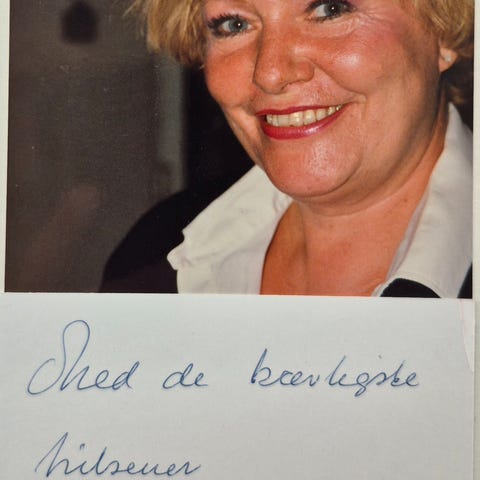 Med de kærligste
hilsener